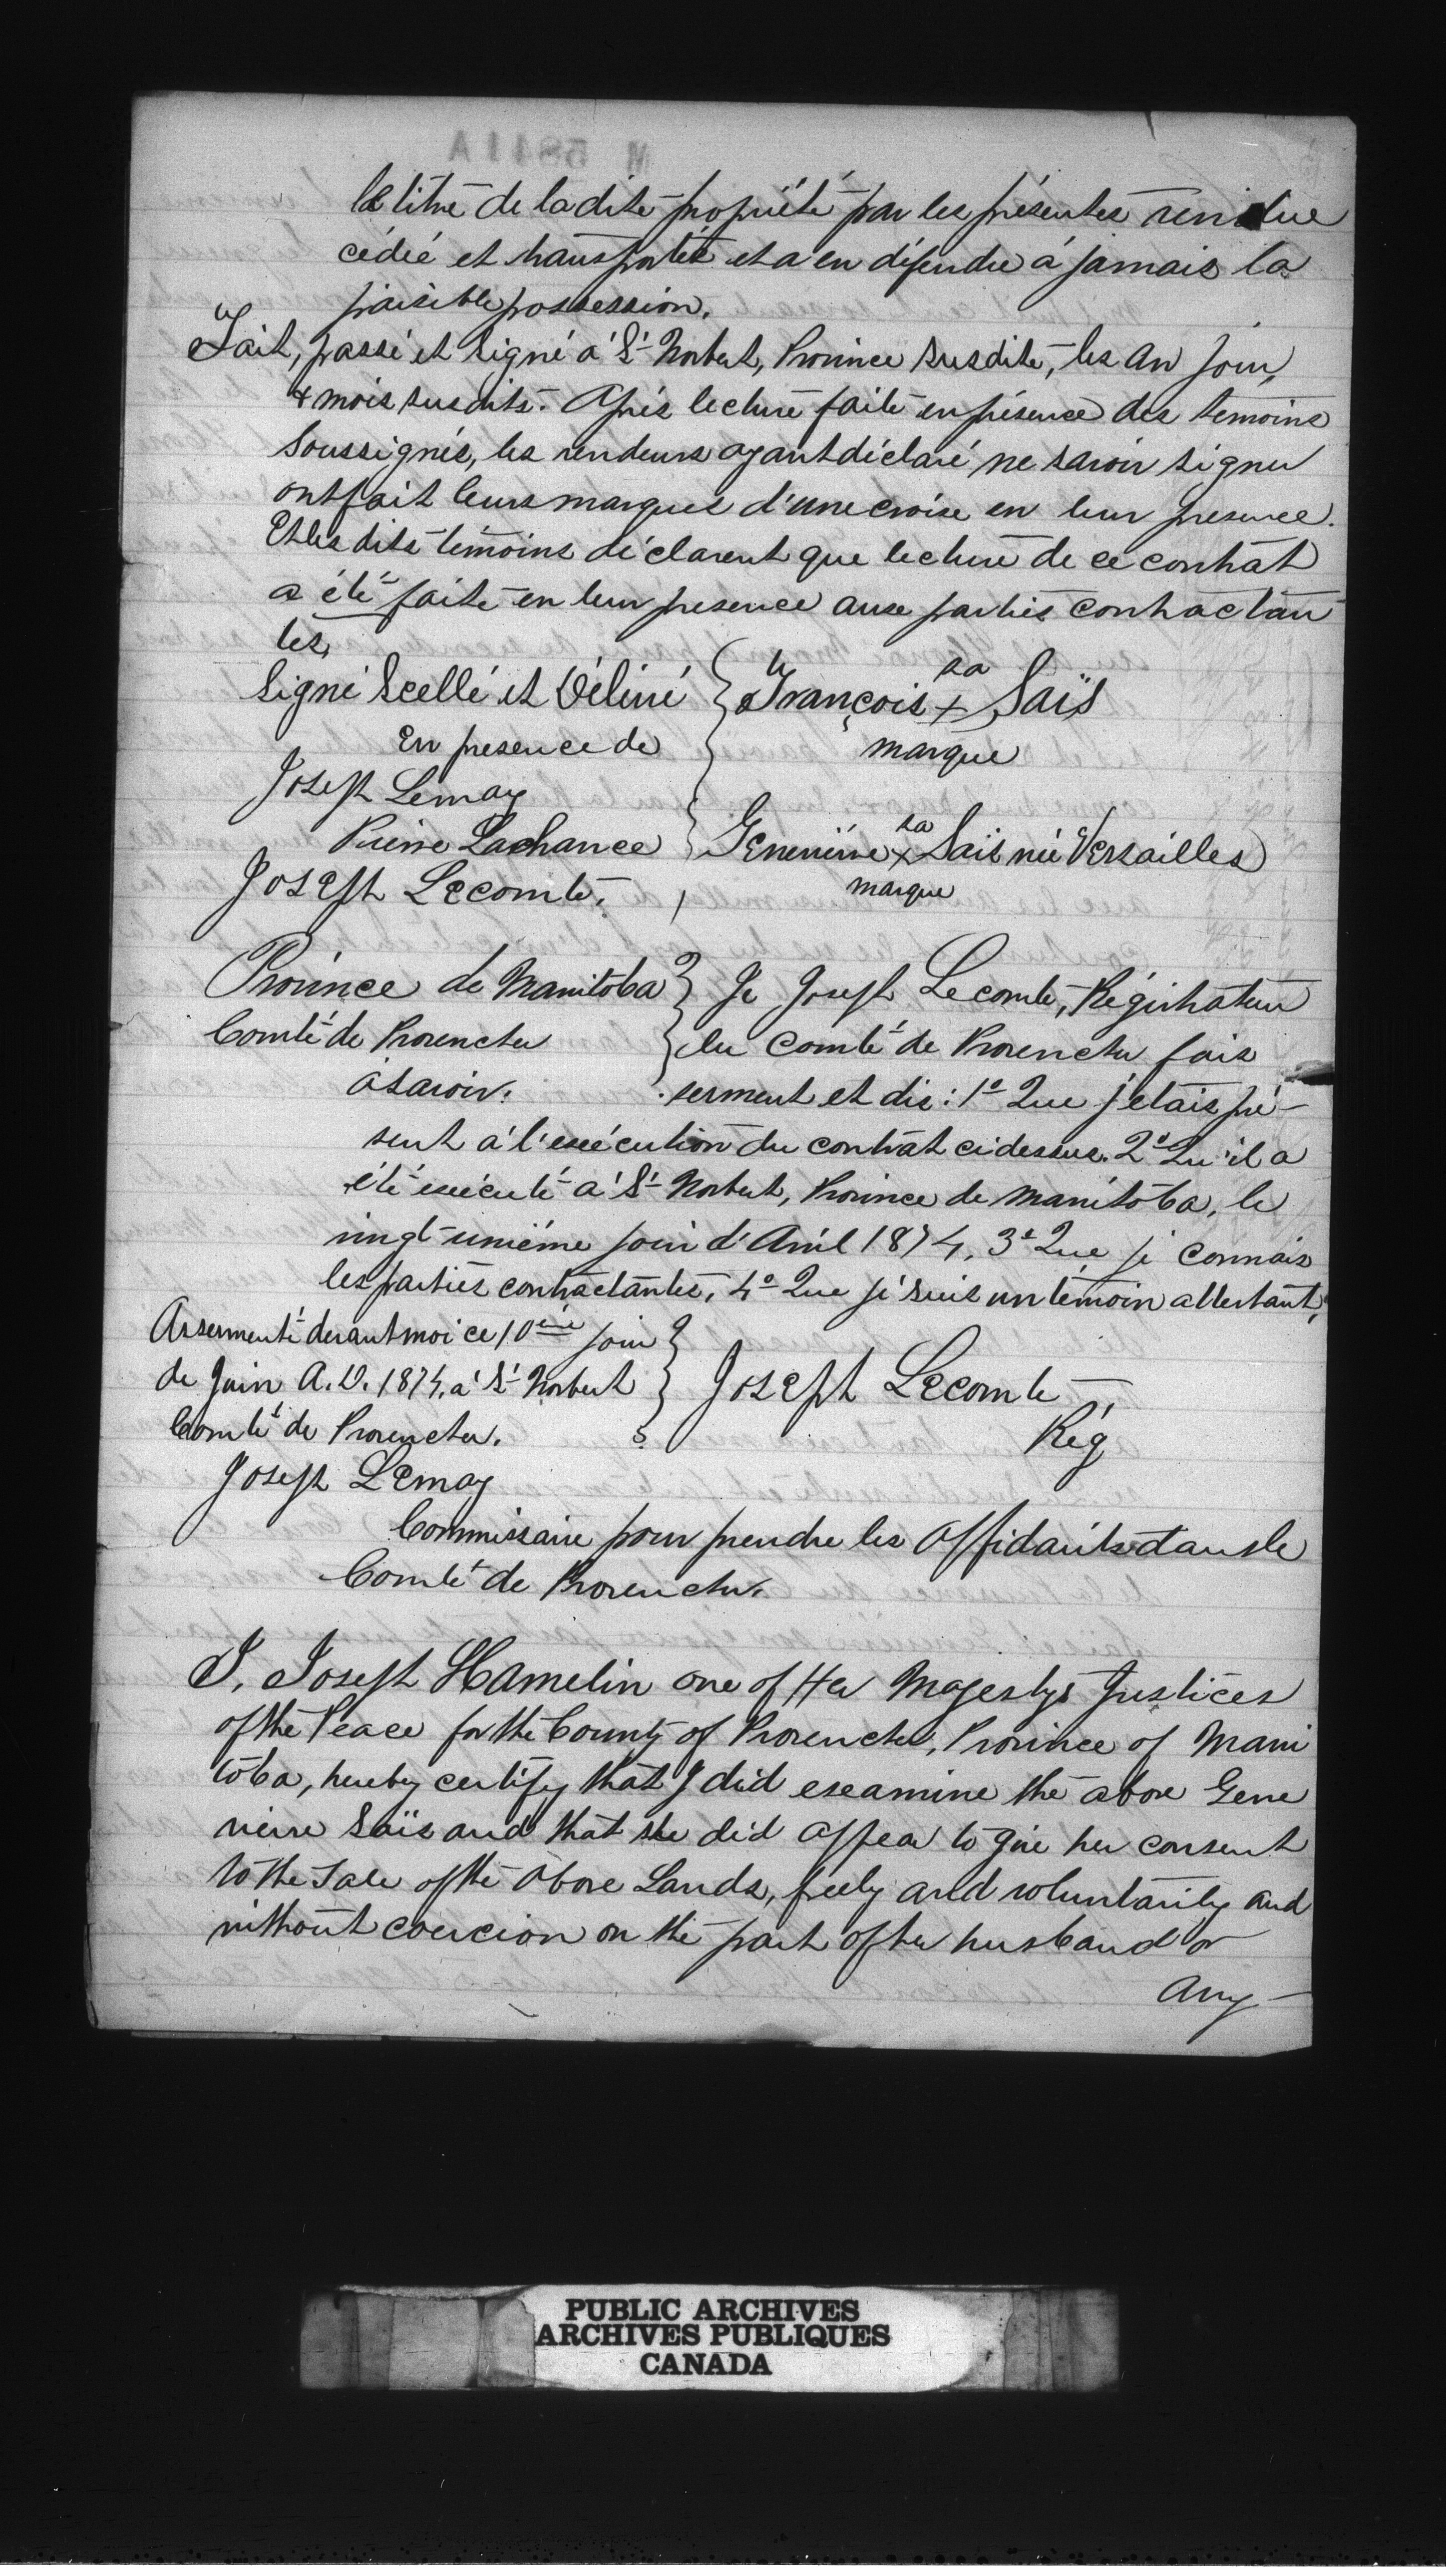 le titre de la dite propriété par les présentes vendue
cédée et transportée et a en défendre à jamais la
paisible possession.
Fait, passé et signé à St Norbert, Province susdite, les an jour,
& mois susdits. Après lecture faite en présence des temoins
Soussignés, les vendeurs ayant déclaré ne savoir signer
ont fait leurs marques d'une croix en leur presence.
Et les dits témoins déclarent que lecture de ce contrat
a été faite en leur presence aux parties contractan
tes,
Signé Scellé et Délivré
En presence de
Joseph Lemay
Pierre Lachance
Joseph Lecomte.
sa
François x Saïs
marque
sa
Genevière x Saïs née Versailles
marque
Province de Manitoba
Comté de Provencher
à savoir.
Je Joseph Lecomte, Régistrateur
du Comté de Provencher fais
serment et dis: 1o Que j'etais pré-
sent à l'exécution du contrat ci dessus. 2o Qu'il a
été exécuté à St Norbert, Province de Manitoba, le
vingt-unième jour d'Avril 1874, 3o Que je connais
les parties contractantes, 4o Que je suis un témoin attestant,
Assermenté devant moi ce 10ème jour
de Juin A.D. 1874, à St Norbert
Comté de Provencher.
Joseph Lecomte
Rég
Joseph Lemay
Commissaire pour prendre les Affidavits dans le
Comté de Provencher.
I, Joseph Hamelin one of Her Majestys Justices
of the Peace for the County of Provencher, Province of Mani
toba, hereby certify that I did examine the above Gene
vieve Saïs and that she did appear to give her consent
to the sale of the above Lands, freely and voluntarily and
without coercion on the part of her husband or
any-
PUBLIC ARCHIVES
ARCHIVES PUBLIQUES
CANADA